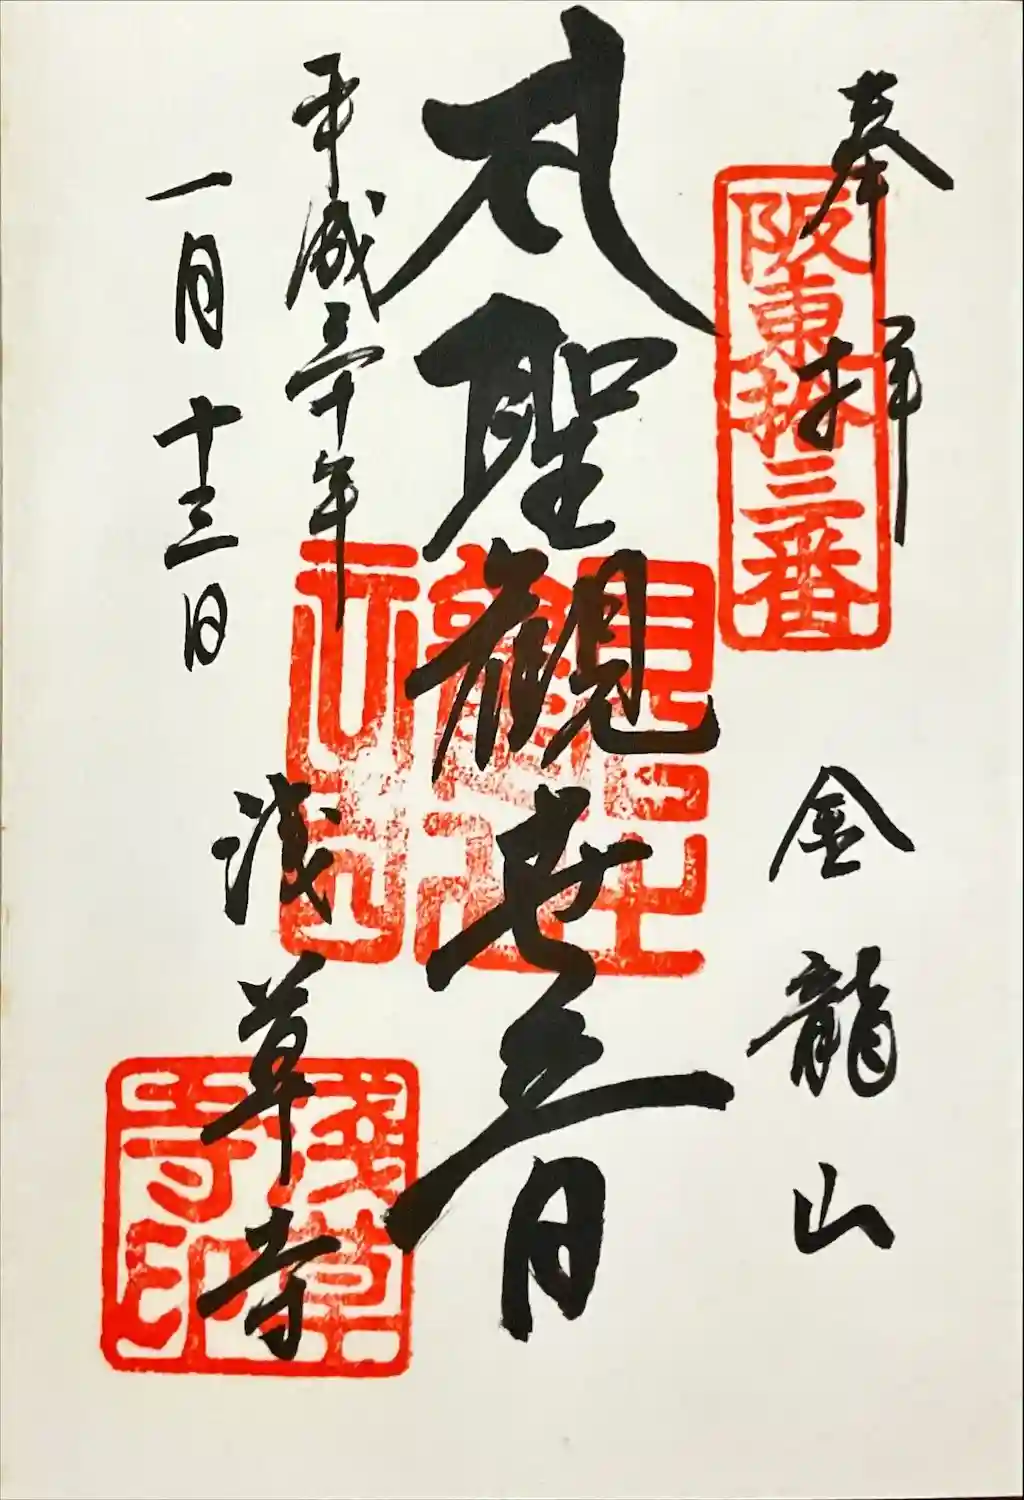 奉拝
阪東拾三番
金龍山
大聖観世音
平成三十年
一月十三日
浅草寺
淺草寺印